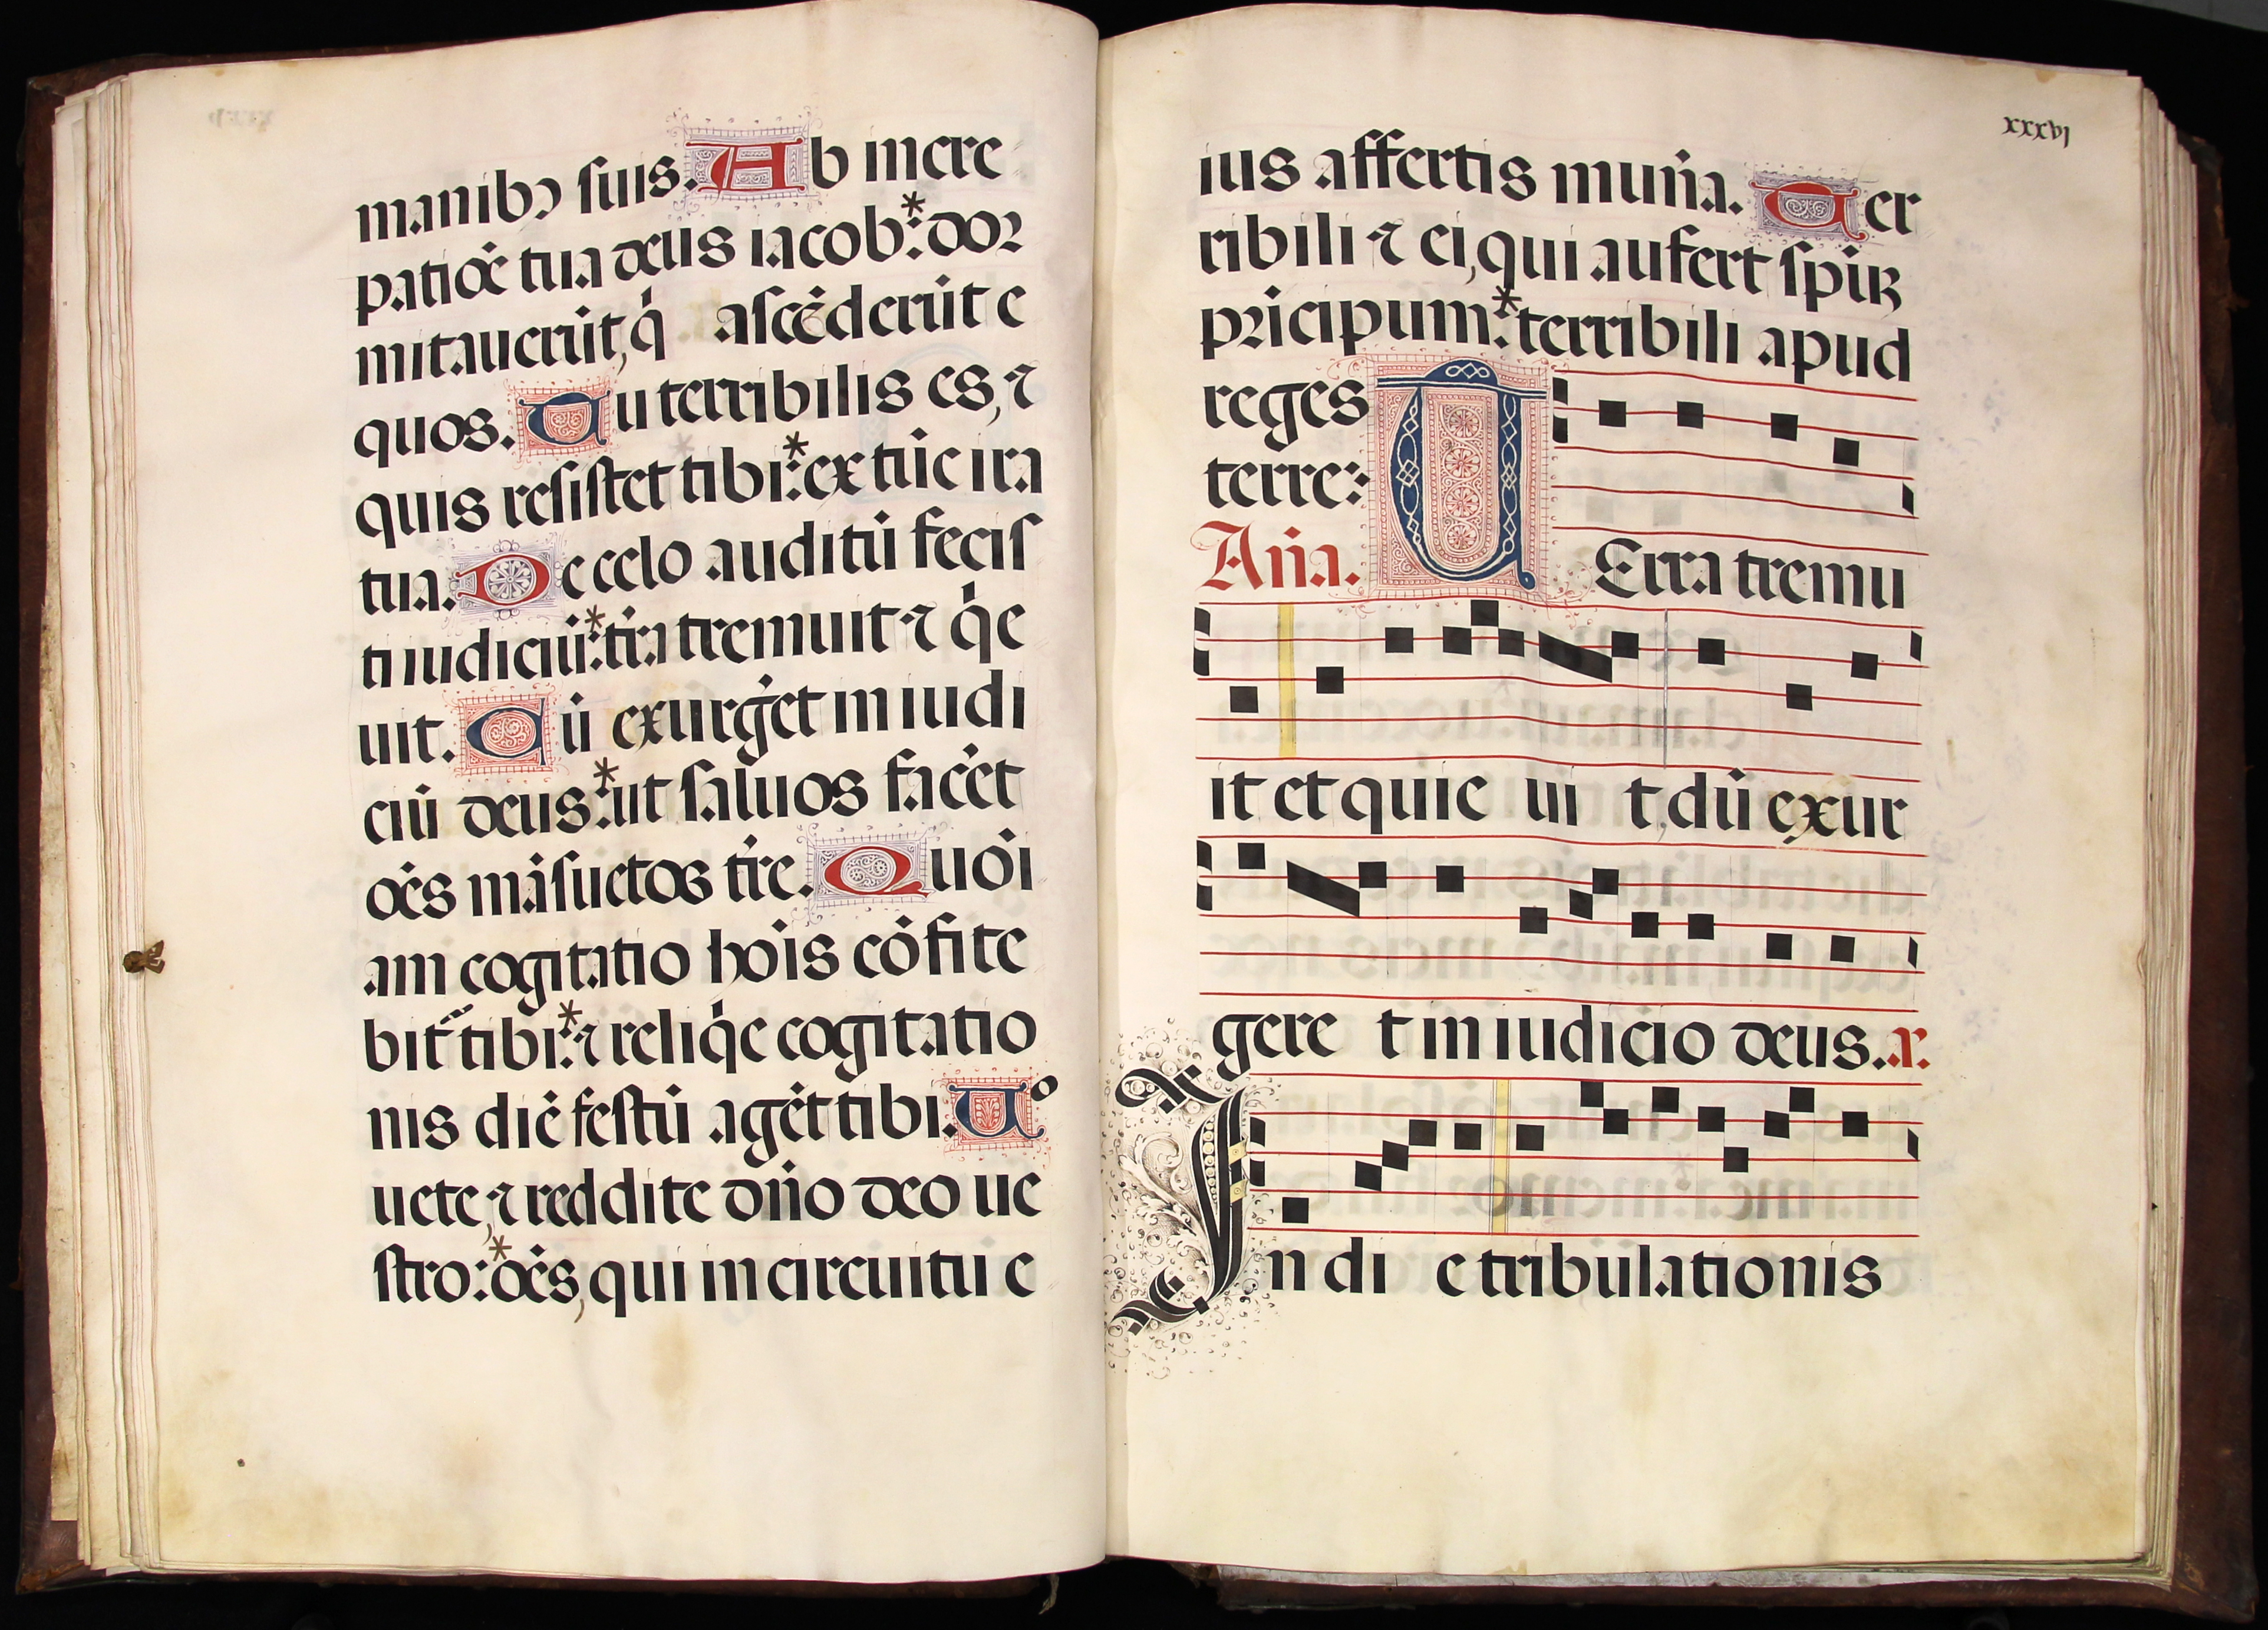 manibꝯ suis. Ab incre
patiōe tua deus iacob: * dor
mitauerūt, q̇ ascēderūt e
quos. Tu terribilis es, ⁊
quis resistet tibi: * ex tūc ira
tua. De celo auditū fecis
ti iudiciū: * tr̄a tremuit ⁊ q̇e
uit. Cū exurgēt in iudi
ciū deus: * ut saluos facēt
oēs māsuetos tr̄e. Quōi
am cogitatio hoīs cōfite
bit᷑ tibi: * ⁊ reliq̇e cogitatio
nis diē festū agēt tibi. Uo
uete, ⁊ reddite dn̄o deo ue
stro: * oēs, qui in circuitu e
xxxvj
ius affertis mun̄a. Ter
ribili ⁊ ei, qui aufert spiꝝ
pricipum: * terribili apud
reges
terre:
An̄a. T Erra tremu
it et quie ui t, dū exur
gere t in iudicio deus. r.
In di e tribulationis